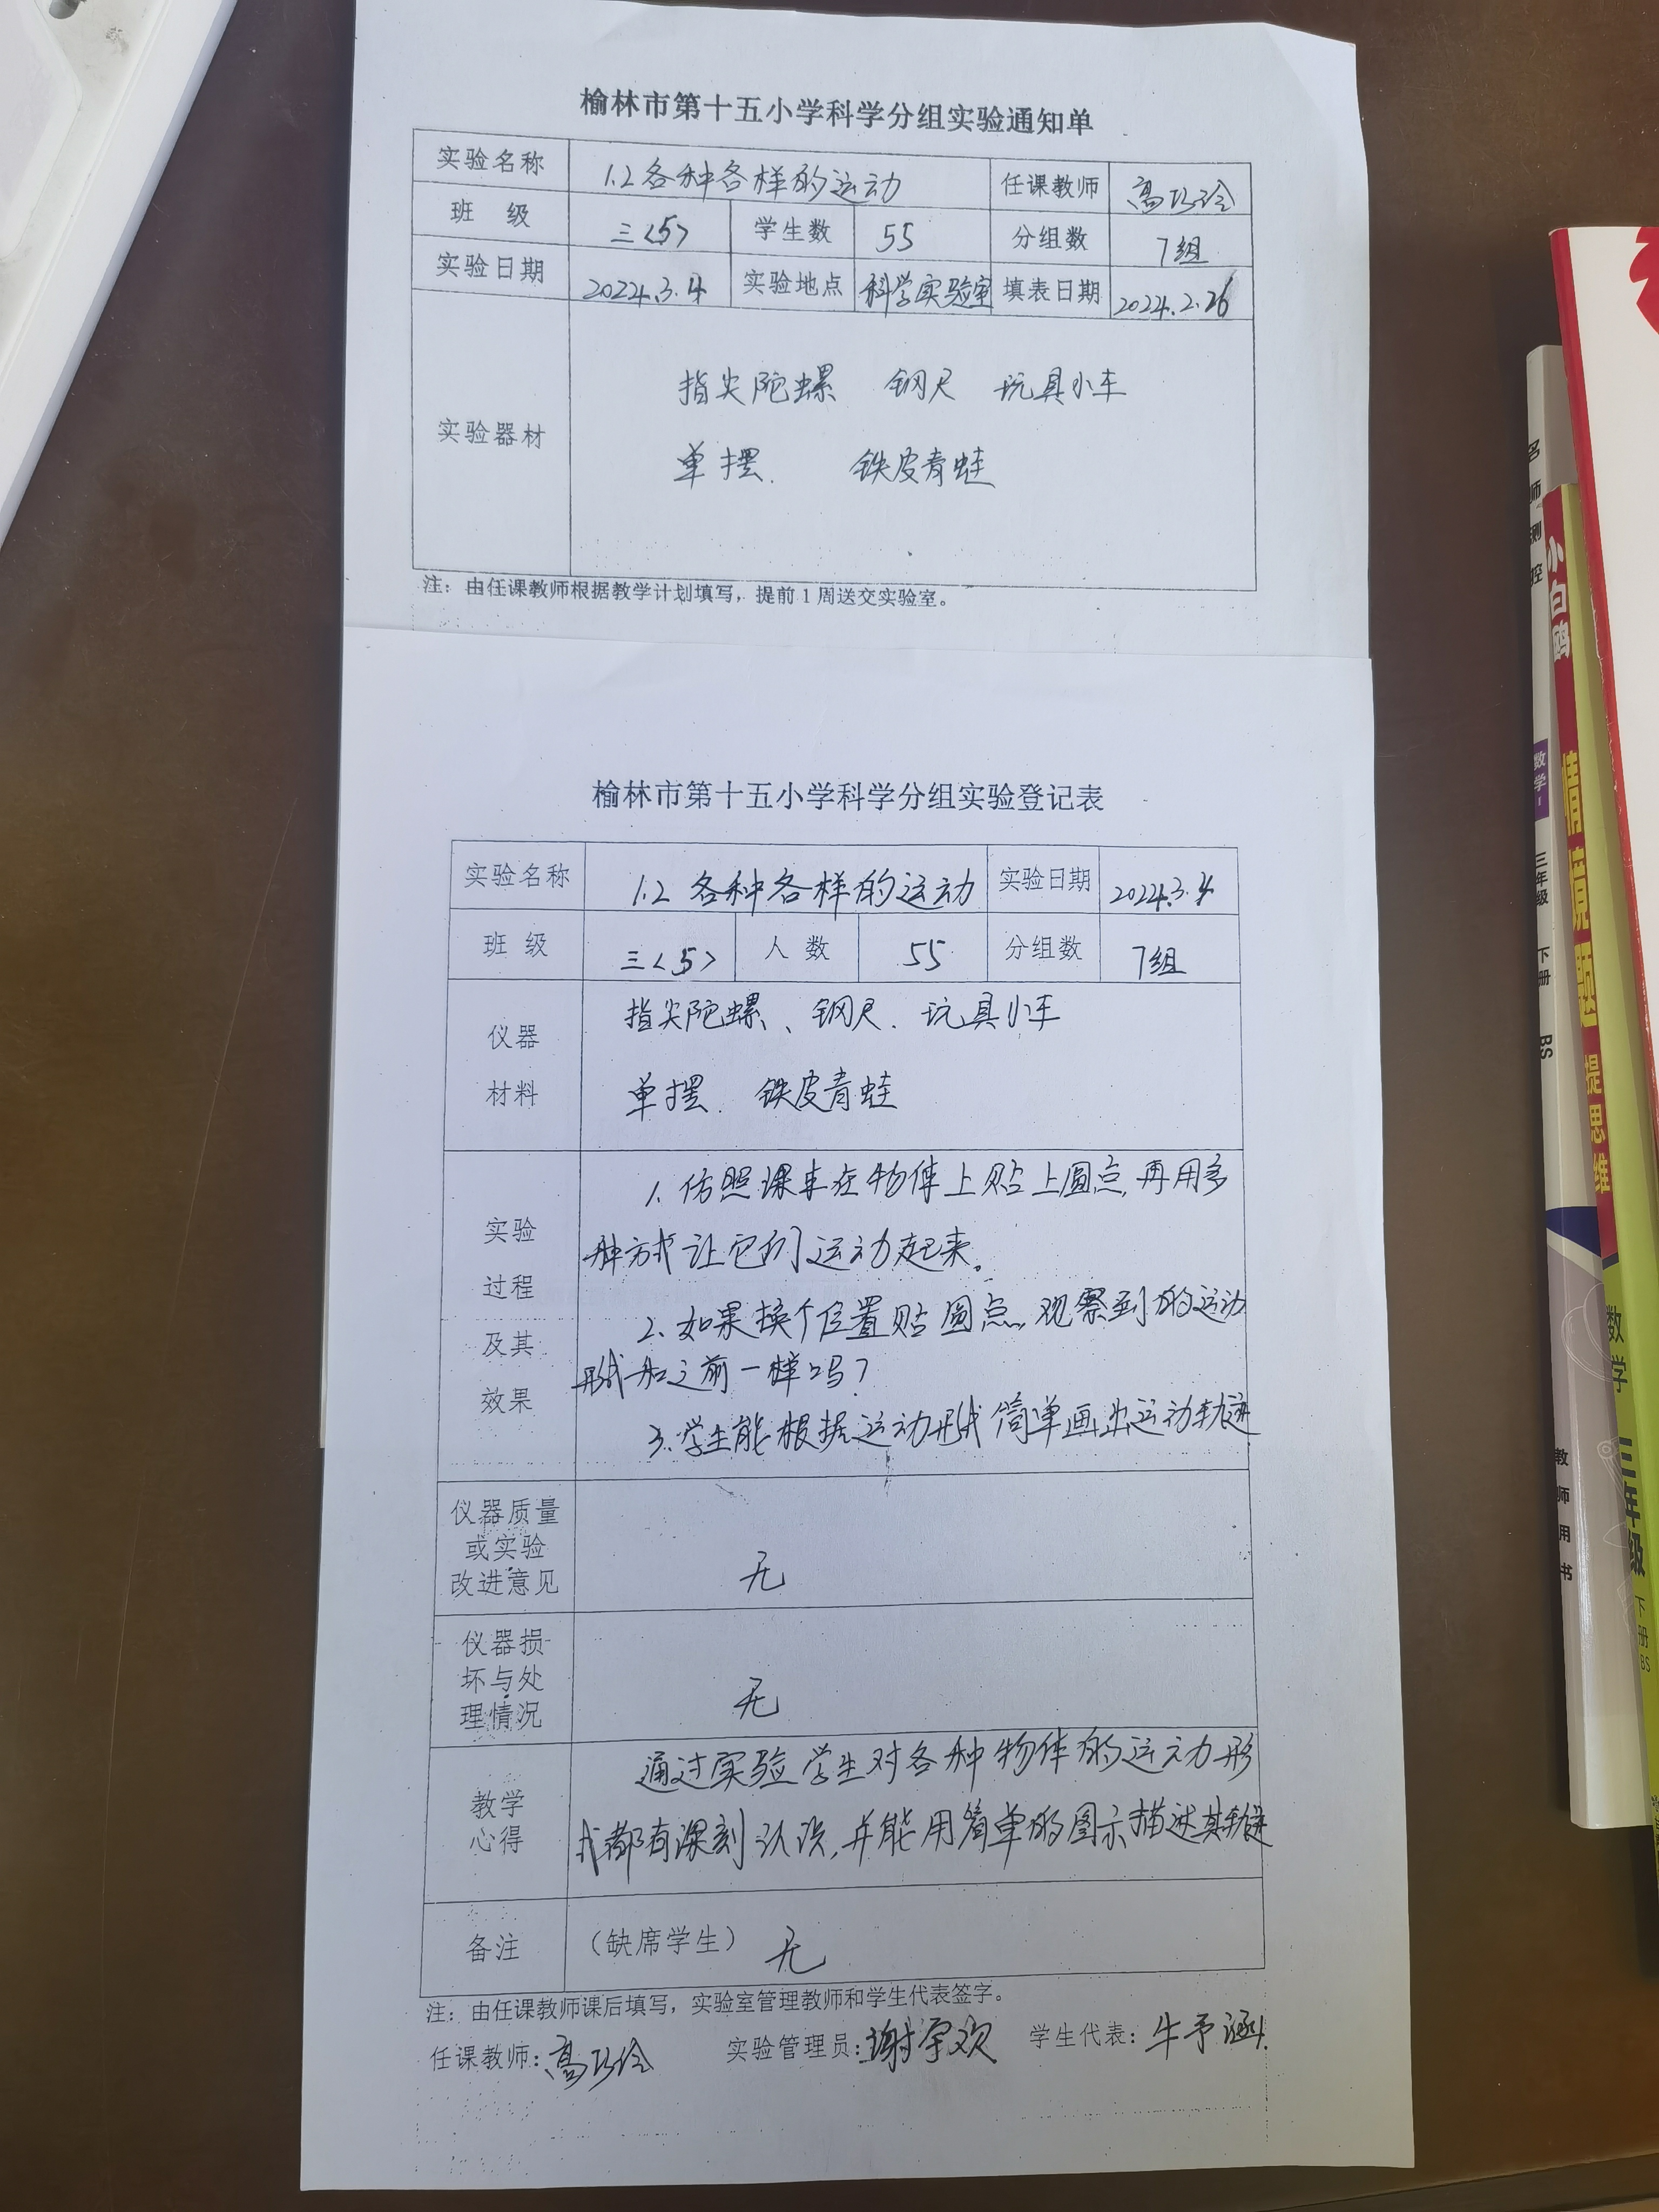 榆林市第十五小学科学分组实验通知单
实验名称 1.2 各种各样的运动 任课教师 高巧玲
班 级 三<5> 学生数 55 分组数 7组
实验日期 2024.3.4 实验地点 科学实验室 填表日期 2024.2.26
实验器材
指尖陀螺 钢尺 玩具小车
单摆. 铁皮青蛙
注：由任课教师根据教学计划填写，提前1周送交实验室。
榆林市第十五小学科学分组实验登记表
实验名称 1.2 各种各样的运动 实验日期 2024.3.4
班 级 三<5> 人 数 55 分组数 7组
仪器
材料
指尖陀螺、钢尺. 玩具小车
单摆. 铁皮青蛙
实验
过程
及其
效果
1. 仿照课本在物体上贴上圆点,再用多
种方式让它们运动起来。
2. 如果换个位置贴圆点,观察到的运动
形式和之前一样吗?
3. 学生能根据运动形式简单画出运动轨迹
仪器质量
或实验
改进意见
无
仪器损
坏与处
理情况
无
教学
心得
通过实验学生对各种物体的运动形
式都有深刻认识,并能用简单的图示描述其轨迹
备注 （缺席学生） 无
注：由任课教师课后填写，实验室管理教师和学生代表签字。
任课教师: 高巧玲 实验管理员: 谢 欢 学生代表: 牛予涵.
名师测控
数学
三年级
下册
BS
教师用书
小白鸥
情境题
提思维
数学
三年级
下册
BS